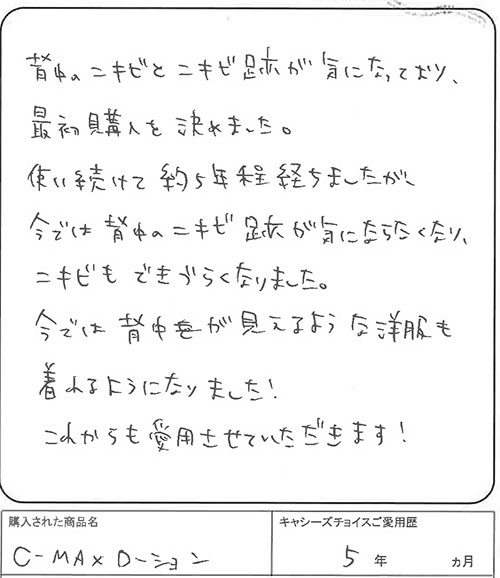 背中のニキビとニキビ跡が気になっており、
最初購入を決めました。
使い続けて約5年程経ちましたが、
今では背中のニキビ跡が気にならなくなり、
ニキビもできづらくなりました。
今では背中が見えるような洋服も
着れるようになりました!
これからも愛用させていただきます!
購入された商品名
C-MAXローション
キャシーズチョイスご愛用歴
5年 ヵ月